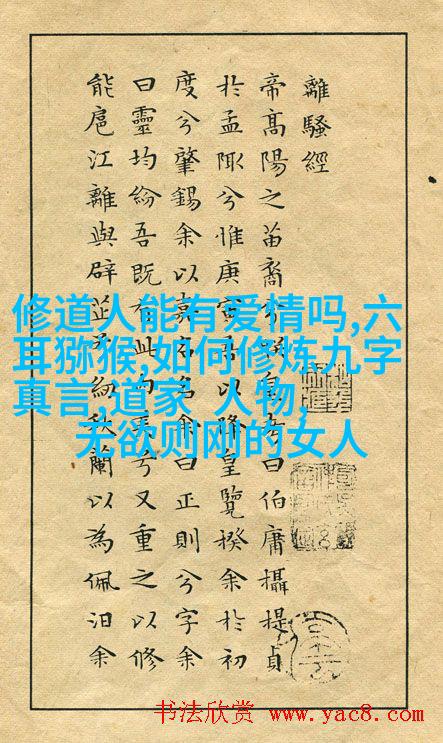 離騷經
帝高陽之苗裔兮曰伯庸攝提貞
於孟陬兮惟庚寅吾以降皇覽揆余於初
度兮肇錫余以嘉名余曰正則兮字余
曰靈均紛吾既有此兮又重之以修
能扈江離與辟芷紉秋蘭以為佩汨余
修道人能有爱情吗,六
耳猕猴,如何修炼九字
真言,道家 人物,
无欲则刚的女人
书法欣赏 www.yac8.com